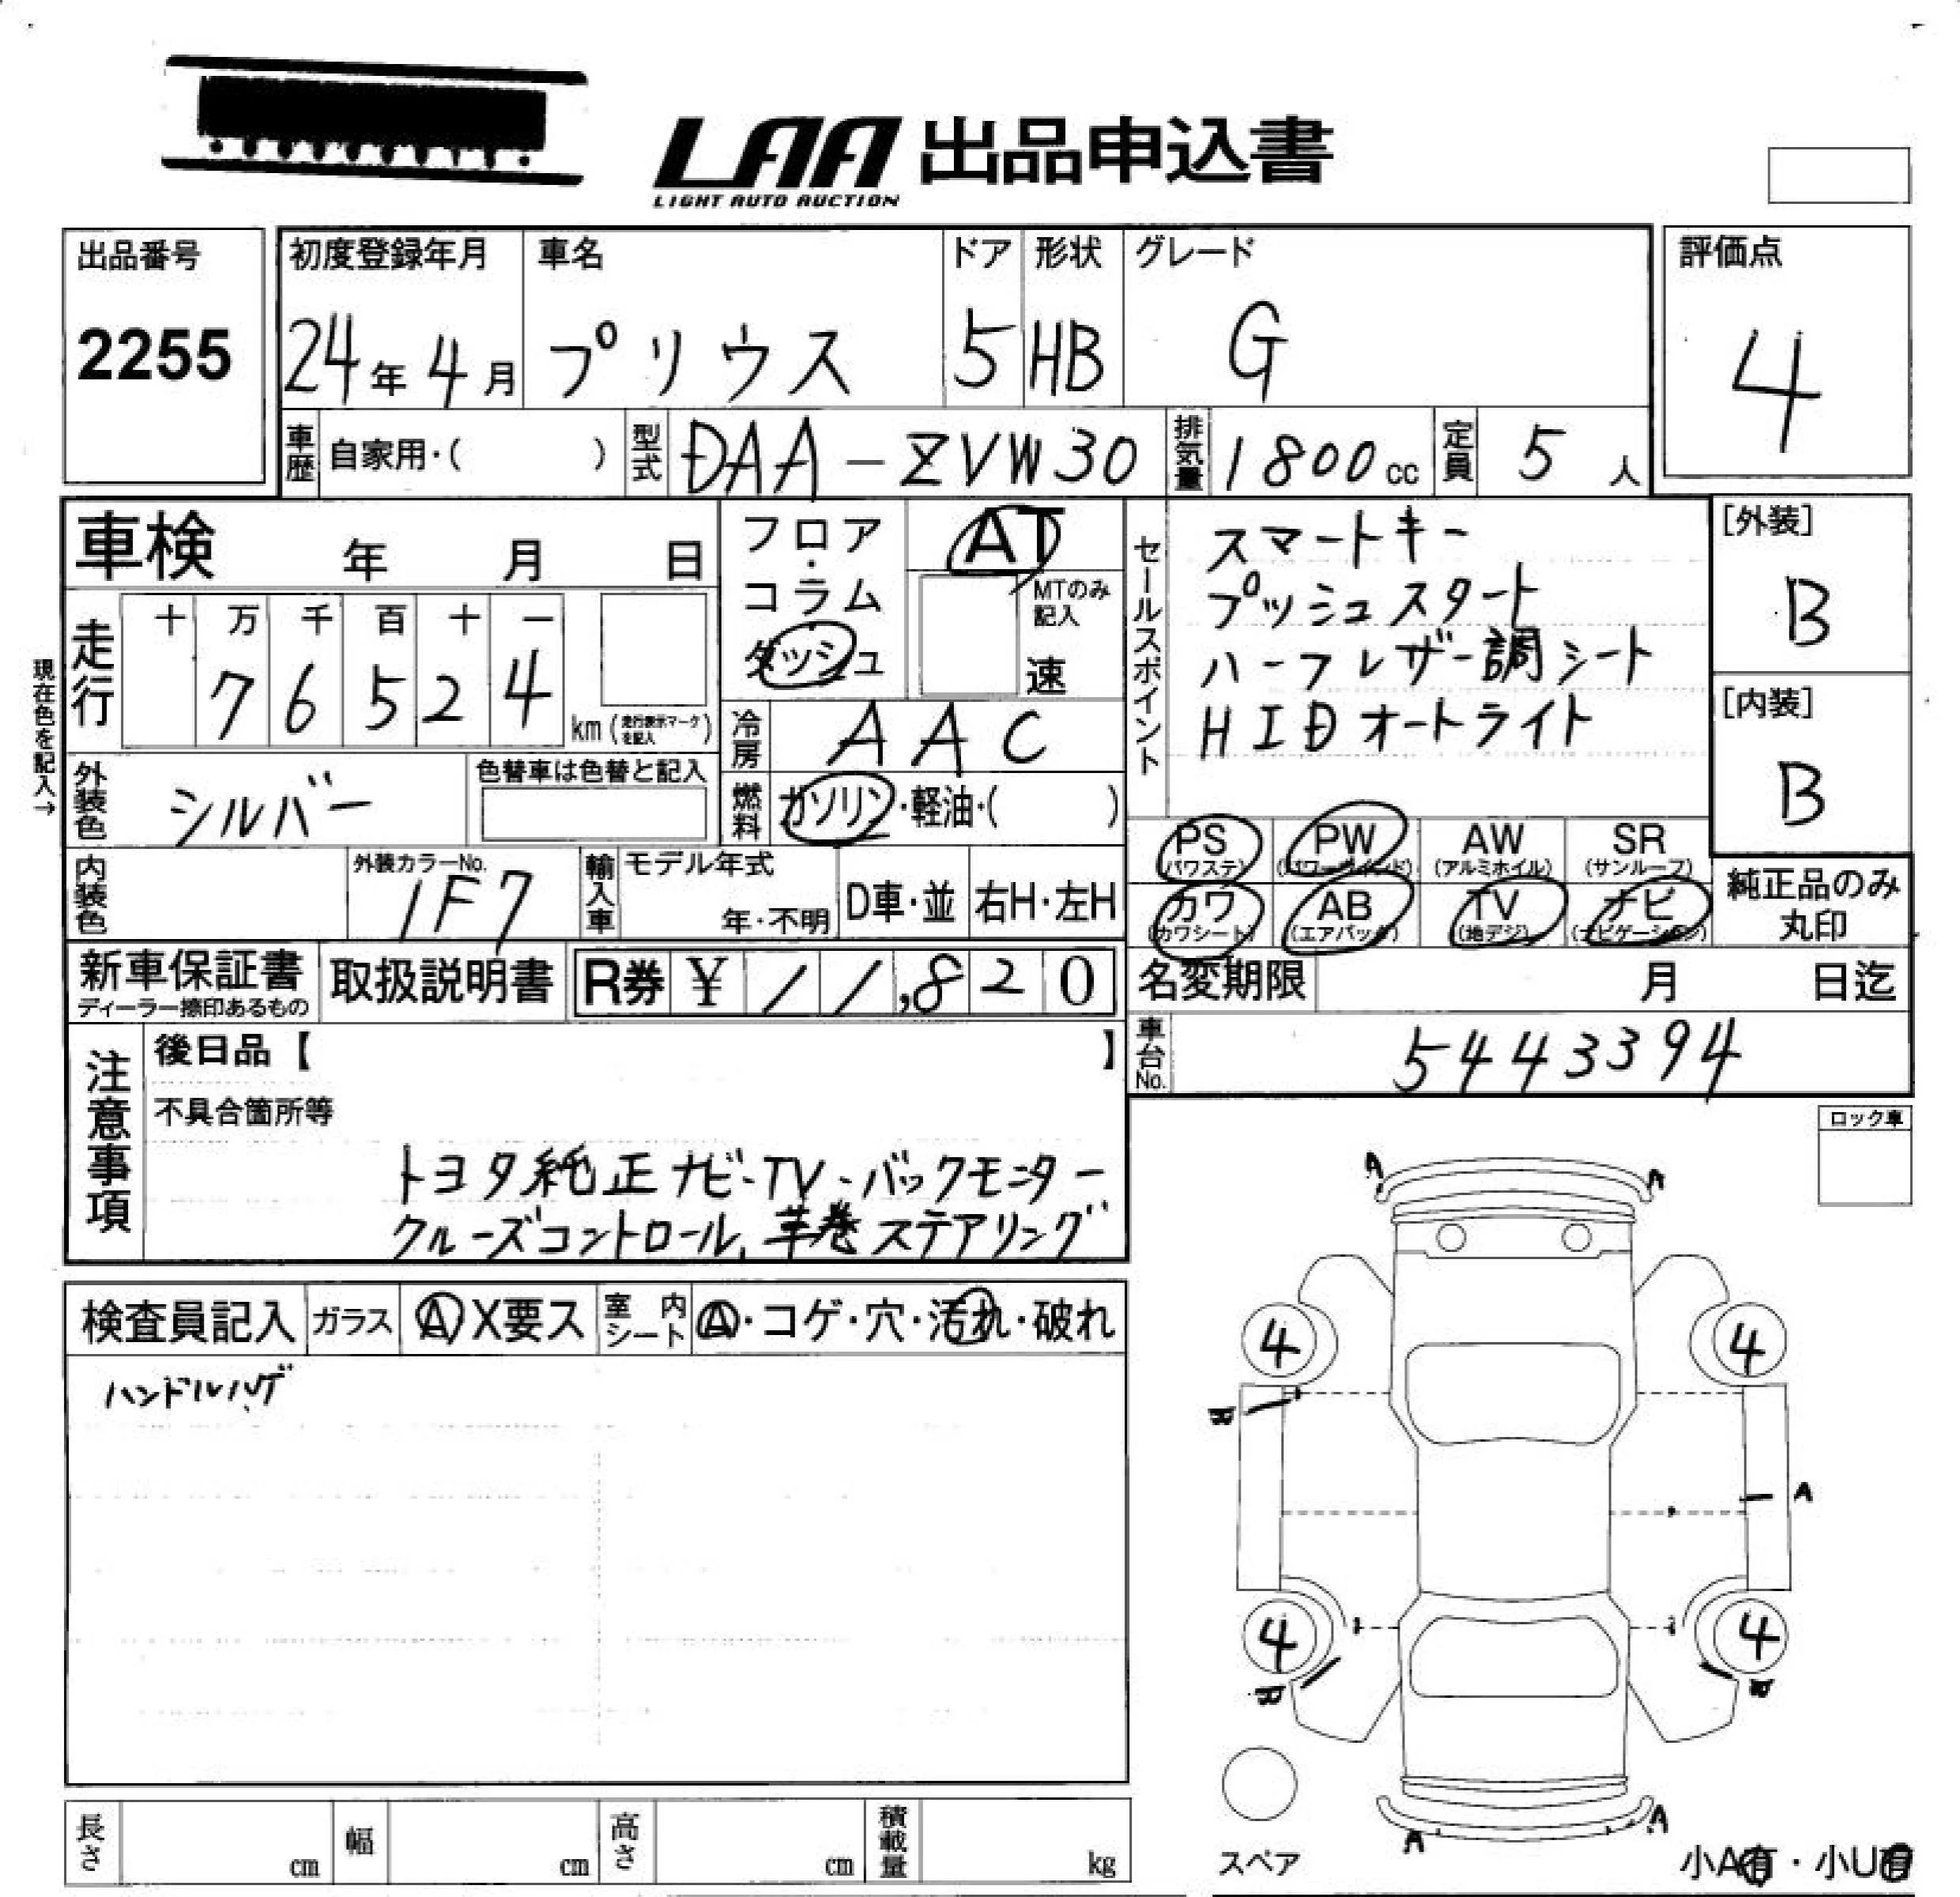 LAA 出品申込書
LIGHT AUTO AUCTION
出品番号
2255
初度登録年月
24年4月
車名
プリウス
ドア
5
形状
HB
グレード
G
評価点
4
車歴 自家用・( )
型式 DAA-ZVW30
排気量 1800cc
定員 5人
車検 年 月 日
フロア・コラム
ダッシュ
AT
MTのみ記入
速
セールスポイント
スマートキー
プッシュスタート
ハーフレザー調シート
HIDオートライト
[外装]
B
[内装]
B
現在色を記入→
走行
十 万 千 百 十 一
7 6 5 2 4
km (走行表示マークを記入)
冷房 AAC
外装色 シルバー
色替車は色替と記入
燃料 ガソリン・軽油・( )
PS (パワステ)
PW (パワーウインド)
AW (アルミホイル)
SR (サンルーフ)
カワ (カワシート)
AB (エアバック)
TV (地デジ)
ナビ (ナビゲーション)
純正品のみ丸印
内装色
外装カラーNo.
1F7
輸入車
モデル年式
年・不明
D車・並
右H・左H
新車保証書
ディーラー捺印あるもの
取扱説明書
R券 ¥11,820
名変期限 月 日迄
車台No. 5443394
注意事項
後日品【 】
不具合箇所等
トヨタ純正ナビ・TV・バックモニター
クルーズコントロール、革巻ステアリング
ロック車
検査員記入
ガラス A X要ス
室内シート A・コゲ・穴・汚れ・破れ
ハンドルハゲ
A A
4 4
A
4 4
A A
スペア
小A有・小U有
長さ cm
幅 cm
高さ cm
積載量 kg